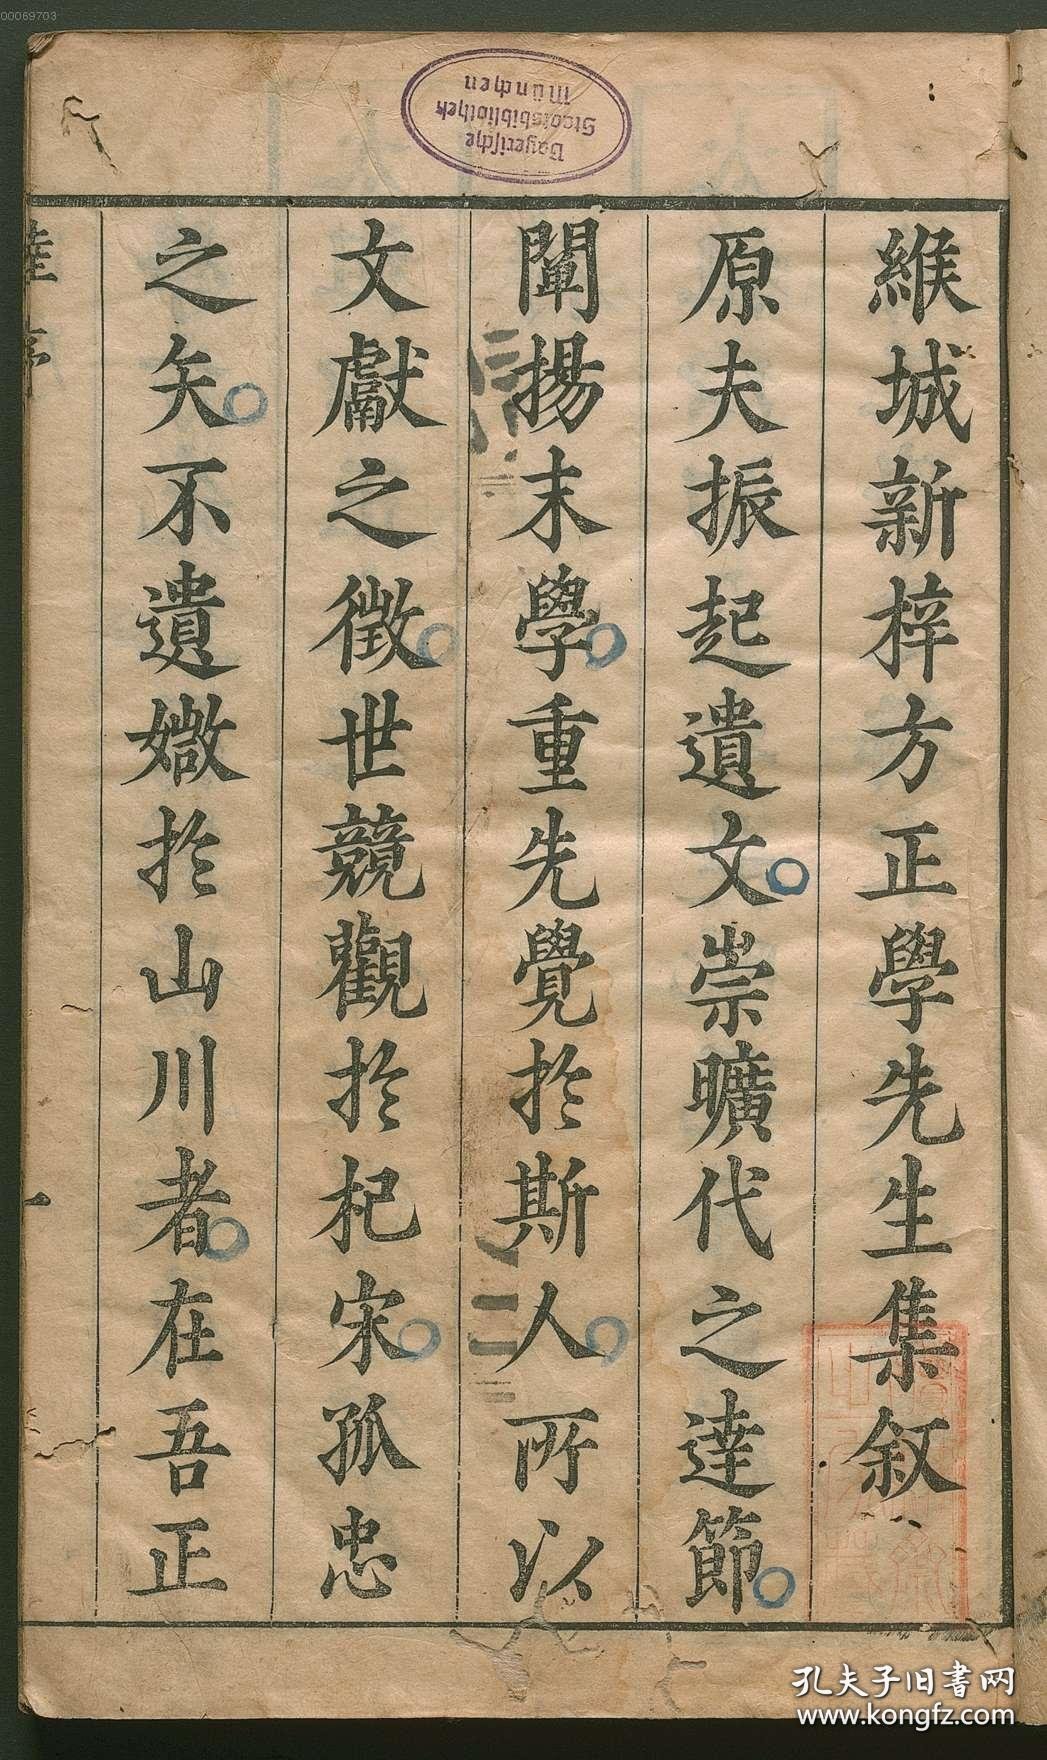 00069703
Bayerische
Staatsbibliothek
München
緱城新梓方正學先生集叙
原夫振起遺文崇曠代之達節
闡揚末學重先覺於斯人所以
文獻之徵世競觀於杞宋孤忠
之矢不遺媺於山川者在吾正
序
一
孔夫子旧书网
www.kongfz.com